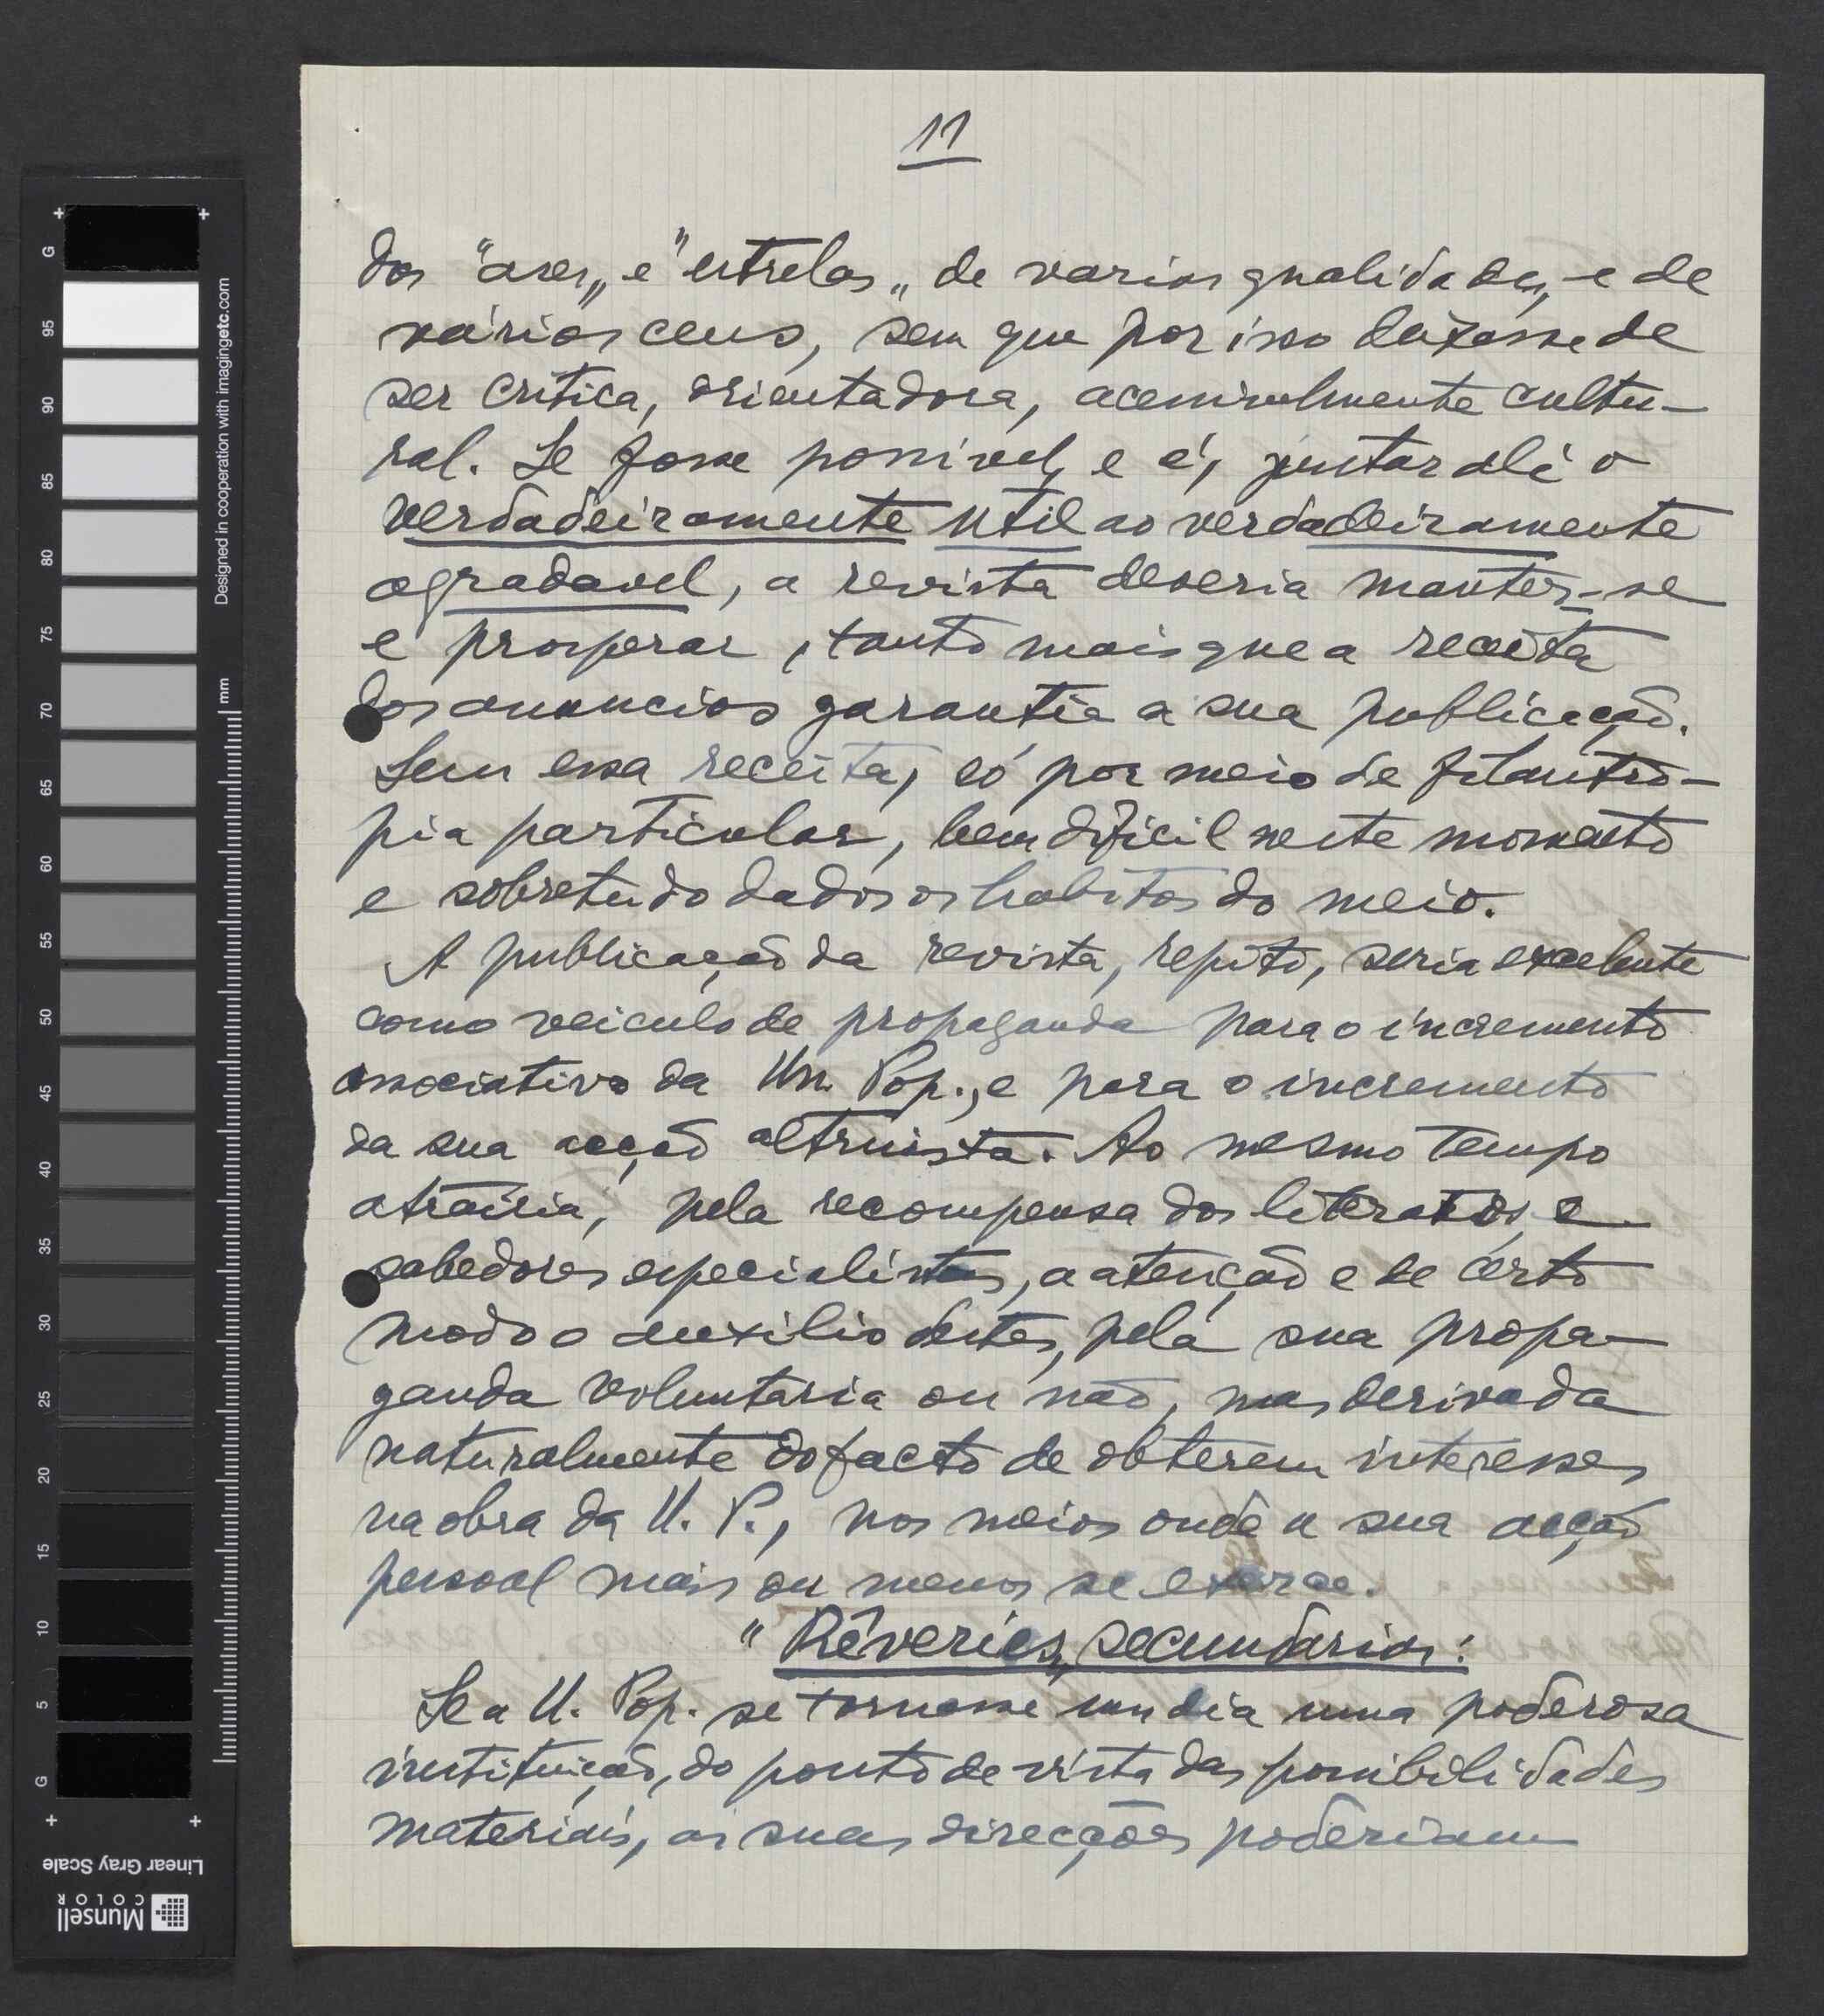 11
dos "ases„ e "estrelas„ de varias qualidades, e de
vários ceus, sem que por isso deixasse de
ser crítica, orientadora, acessivelmente cultu-
ral. Se fosse possivel, e é, juntar ali o
verdadeiramente util ao verdadeiramente
agradavel, a revista deveria manter-se
e prosperar, tanto mais que a receita
dos anuncios garantia a sua publicação.
Sem essa receita, só por meio de filantro-
pia particular, bem dificil neste momento
e sobretudo dados os habitos do meio.
A publicação da revista, repito, seria excelente
como veiculo de propaganda para o incremento
associativo da Un. Pop., e para o incremento
da sua acção altruista. Ao mesmo tempo
atrairia, pela recompensa dos literatos, e
sabedores especialistas, a atenção e de certo
modo o auxilio destes, pela sua propa-
ganda voluntária ou não, mas derivada
naturalmente do facto de obterem interesses
na obra da U. P., nos meios onde a sua acção
pessoal mais ou menos se exerce.
"Rêveries„ secundarias:
Se a U. Pop. se tornasse um dia uma poderosa
instituição, do ponto de vista das possibilidades
materiais, as suas direcções poderiam
Designed in cooperation with imagingetc.com
mm
G
95
90
85
80
75
70
65
60
55
50
45
40
35
30
25
20
15
10
5
G
Linear Gray Scale
Munsell
COLOR